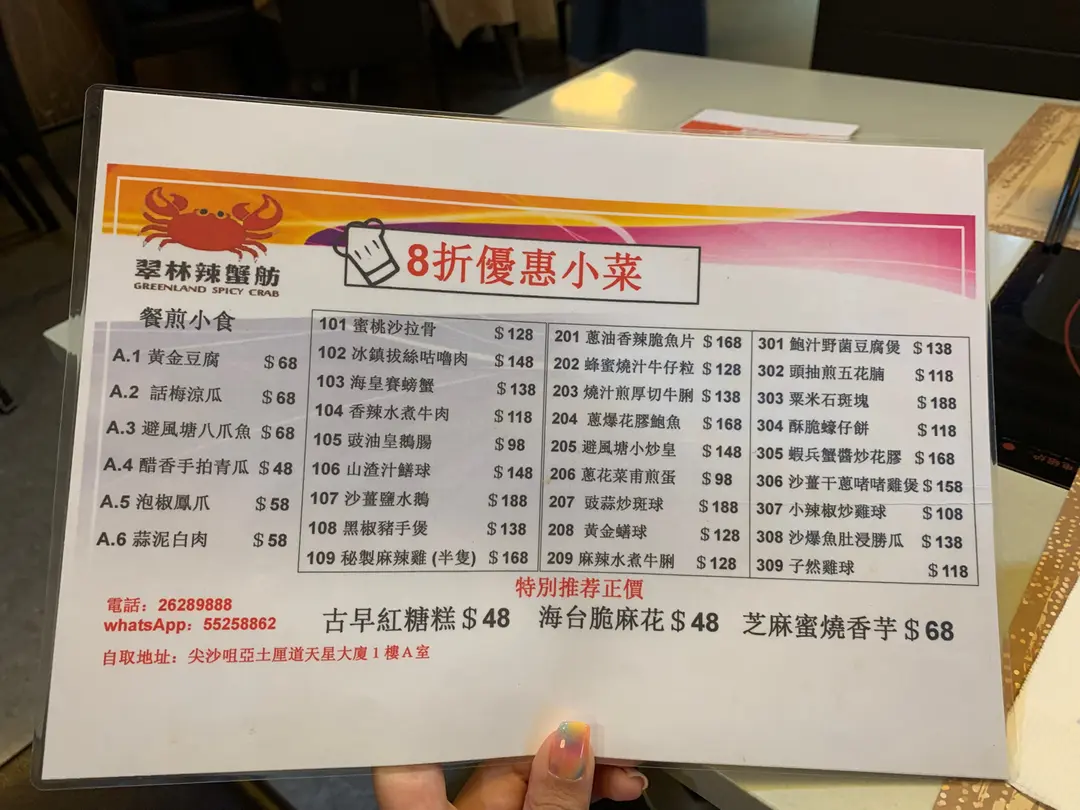 翠林辣蟹舫
GREENLAND SPICY CRAB
8折優惠小菜
餐煎小食
A.1 黃金豆腐 $68
A.2 話梅涼瓜 $68
A.3 避風塘八爪魚 $68
A.4 醋香手拍青瓜 $48
A.5 泡椒鳳爪 $58
A.6 蒜泥白肉 $58
101 蜜桃沙拉骨 $128
102 冰鎮拔絲咕嚕肉 $148
103 海皇賽螃蟹 $138
104 香辣水煮牛肉 $118
105 豉油皇鵝腸 $98
106 山渣汁鱔球 $148
107 沙薑鹽水鵝 $188
108 黑椒豬手煲 $138
109 秘製麻辣雞 (半隻) $168
201 蔥油香辣脆魚片 $168
202 蜂蜜燒汁牛仔粒 $128
203 燒汁煎厚切牛脷 $138
204 蔥爆花膠鮑魚 $168
205 避風塘小炒皇 $148
206 蔥花菜甫煎蛋 $98
207 豉蒜炒斑球 $188
208 黃金鱔球 $128
209 麻辣水煮牛脷 $128
301 鮑汁野菌豆腐煲 $138
302 頭抽煎五花腩 $118
303 粟米石斑塊 $188
304 酥脆蠔仔餅 $118
305 蝦兵蟹醬炒花膠 $168
306 沙薑干蔥啫啫雞煲 $158
307 小辣椒炒雞球 $108
308 沙爆魚肚浸勝瓜 $138
309 子然雞球 $118
特別推荐正價
古早紅糖糕 $48 海台脆麻花 $48 芝麻蜜燒香芋 $68
電話：26289888
whatsApp：55258862
自取地址：尖沙咀亞士厘道天星大廈1樓A室